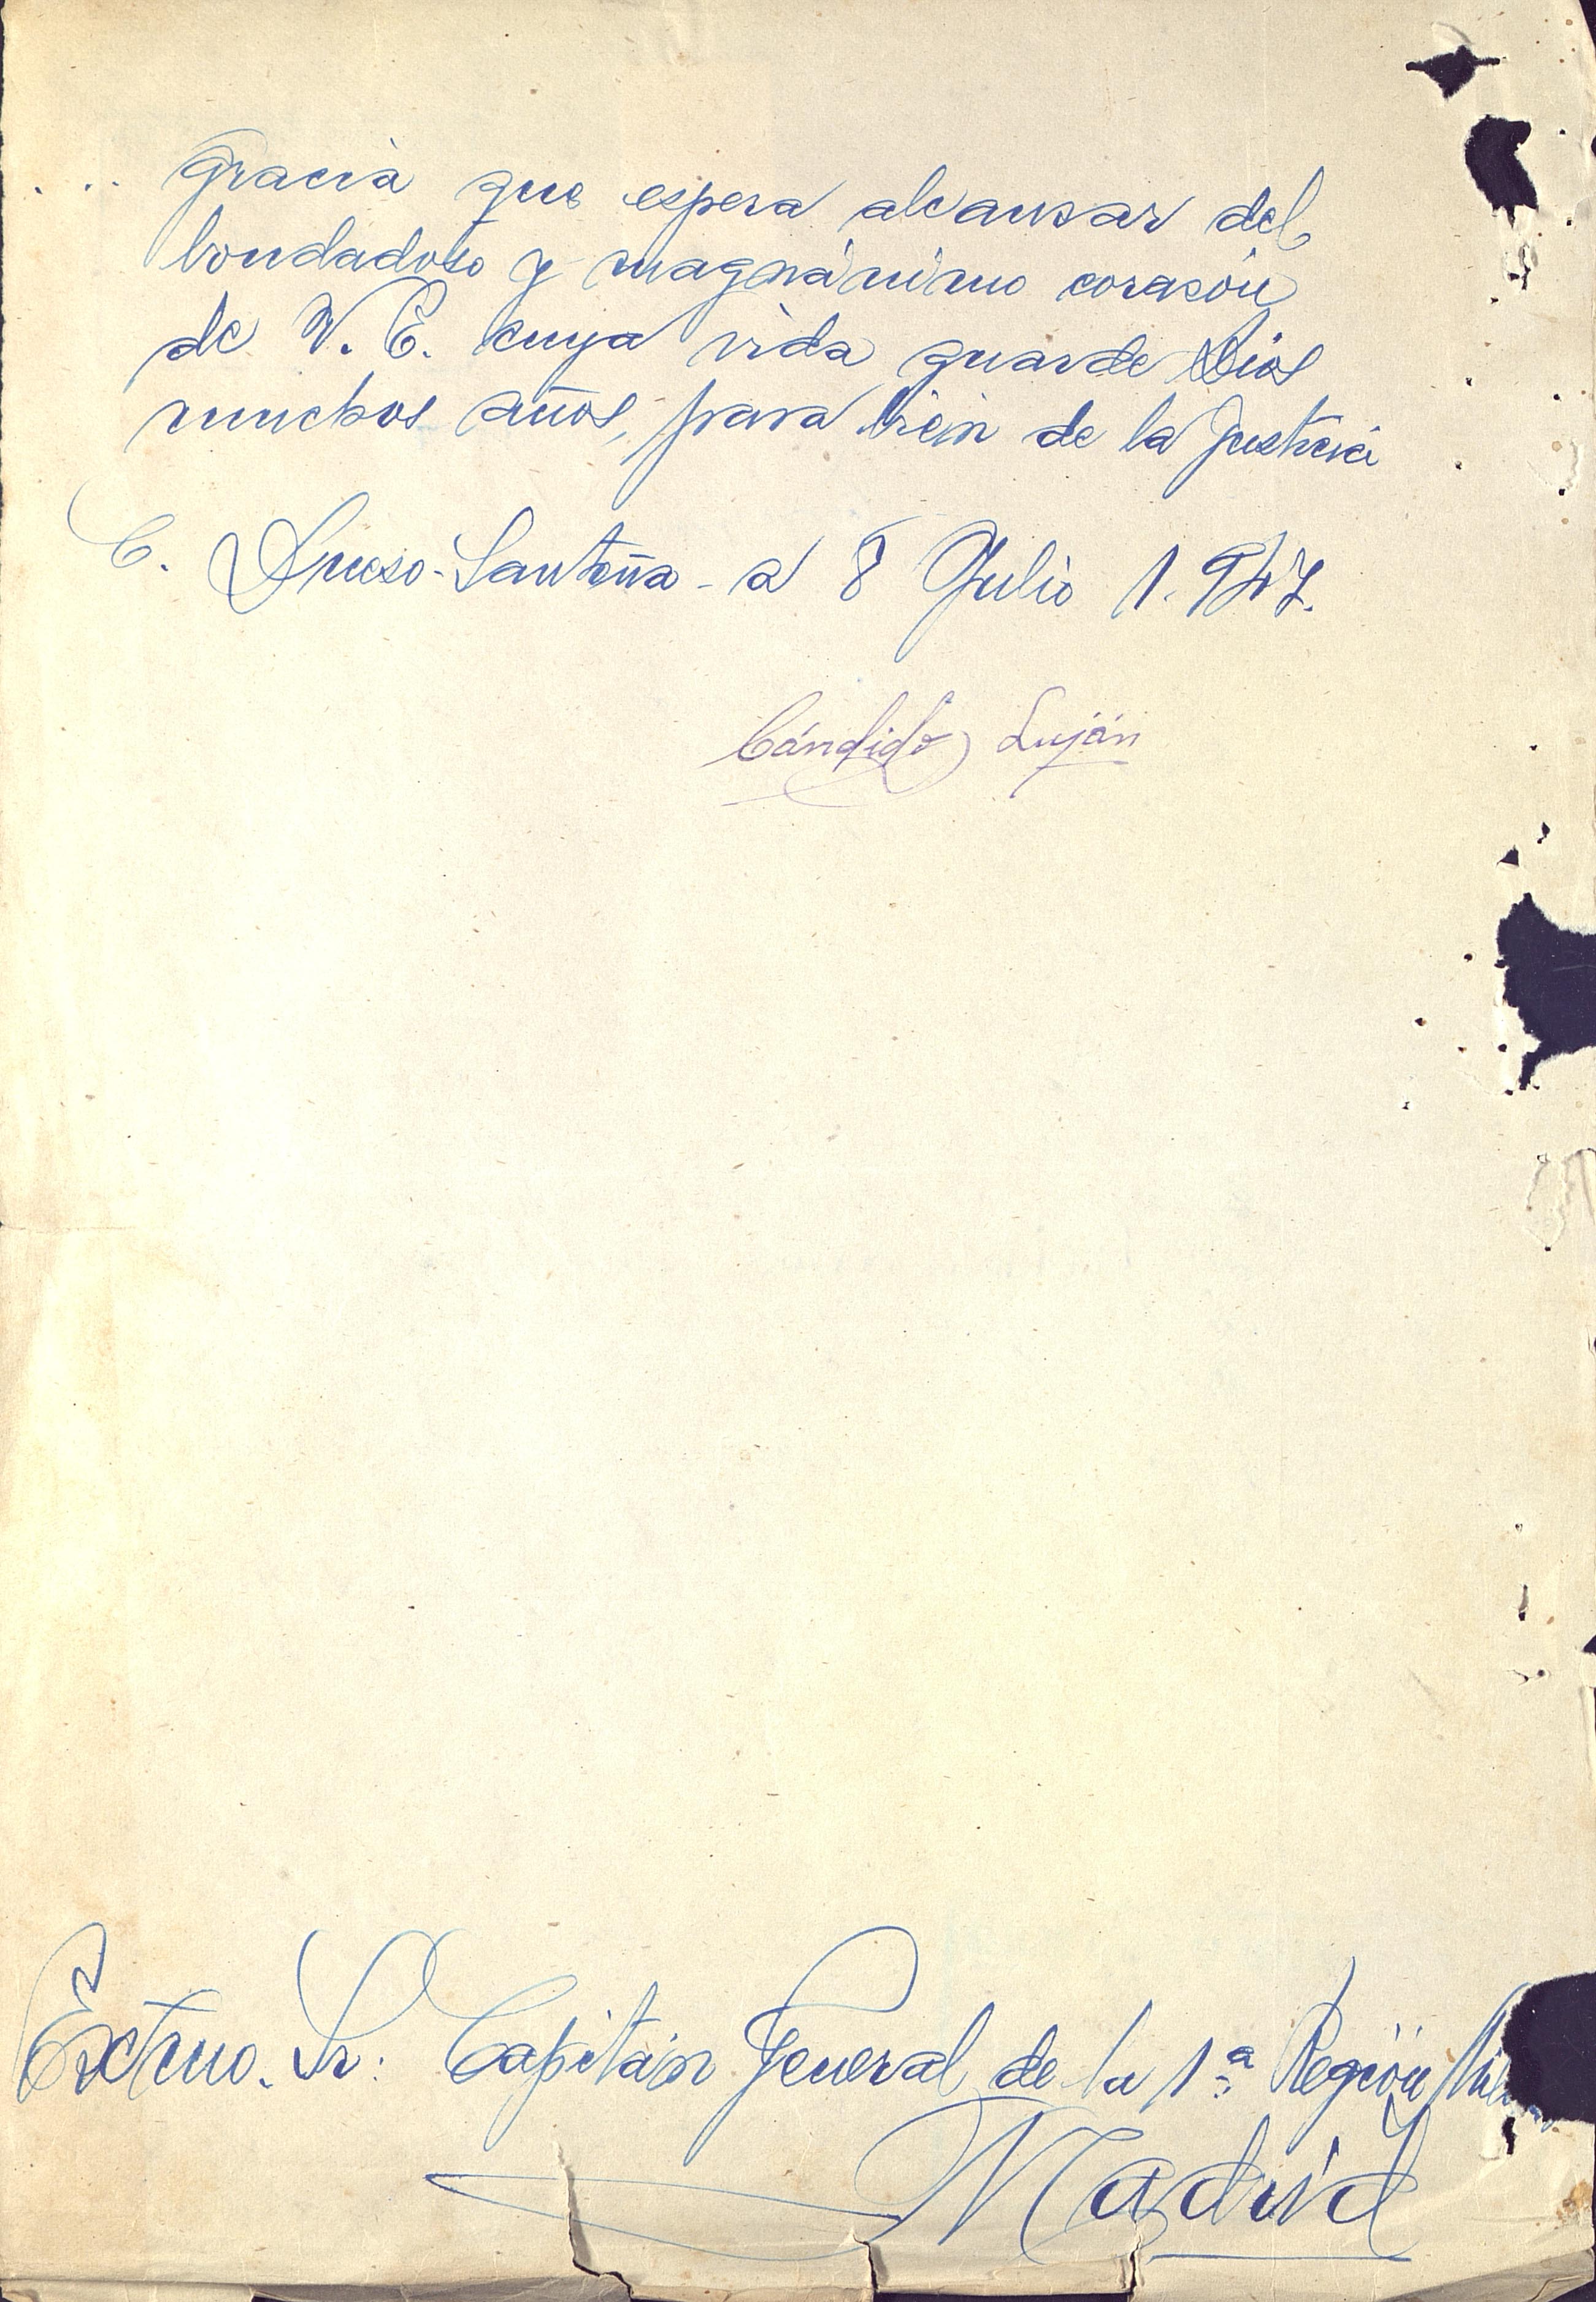 ... Gracia que espera alcanzar del
bondadoso y magnánimo corazón
de V. E. cuya vida guarde Dios
muchos años, para bien de la Justicia
C. Dueso-Santoña - a 8 Julio 1.947.
Cándido Luján
Exctmo. Sr: Capitán General de la 1ª Región Mil
Madrid